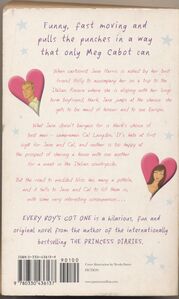 Funny, fast moving and
pulls the punches in a way
that only Meg Cabot can
When cartoonist Jane Harris is asked by her best
friend Holly to accompany her on a trip to the
Italian Riviera where she is eloping with her long
term boyfriend, Mark, Jane jumps at the chance: she
gets to be maid of honour and to see Europe.
What Jane doesn't bargain for is Mark's choice of
best man - womaniser Cal Langdon. It's hate at first
sight for Jane and Cal, and neither is too happy at
the prospect of sharing a house with one another
for a week in the Italian countryside.
But the road to wedded bliss has many a pothole,
and it falls to Jane and Cal to fill them in, with
some very interesting consequences...
EVERY BOY'S GOT ONE is a hilarious, fun and
original novel from the author of the internationally
bestselling THE PRINCESS DIARIES.
90100
9780330436137
FICTION